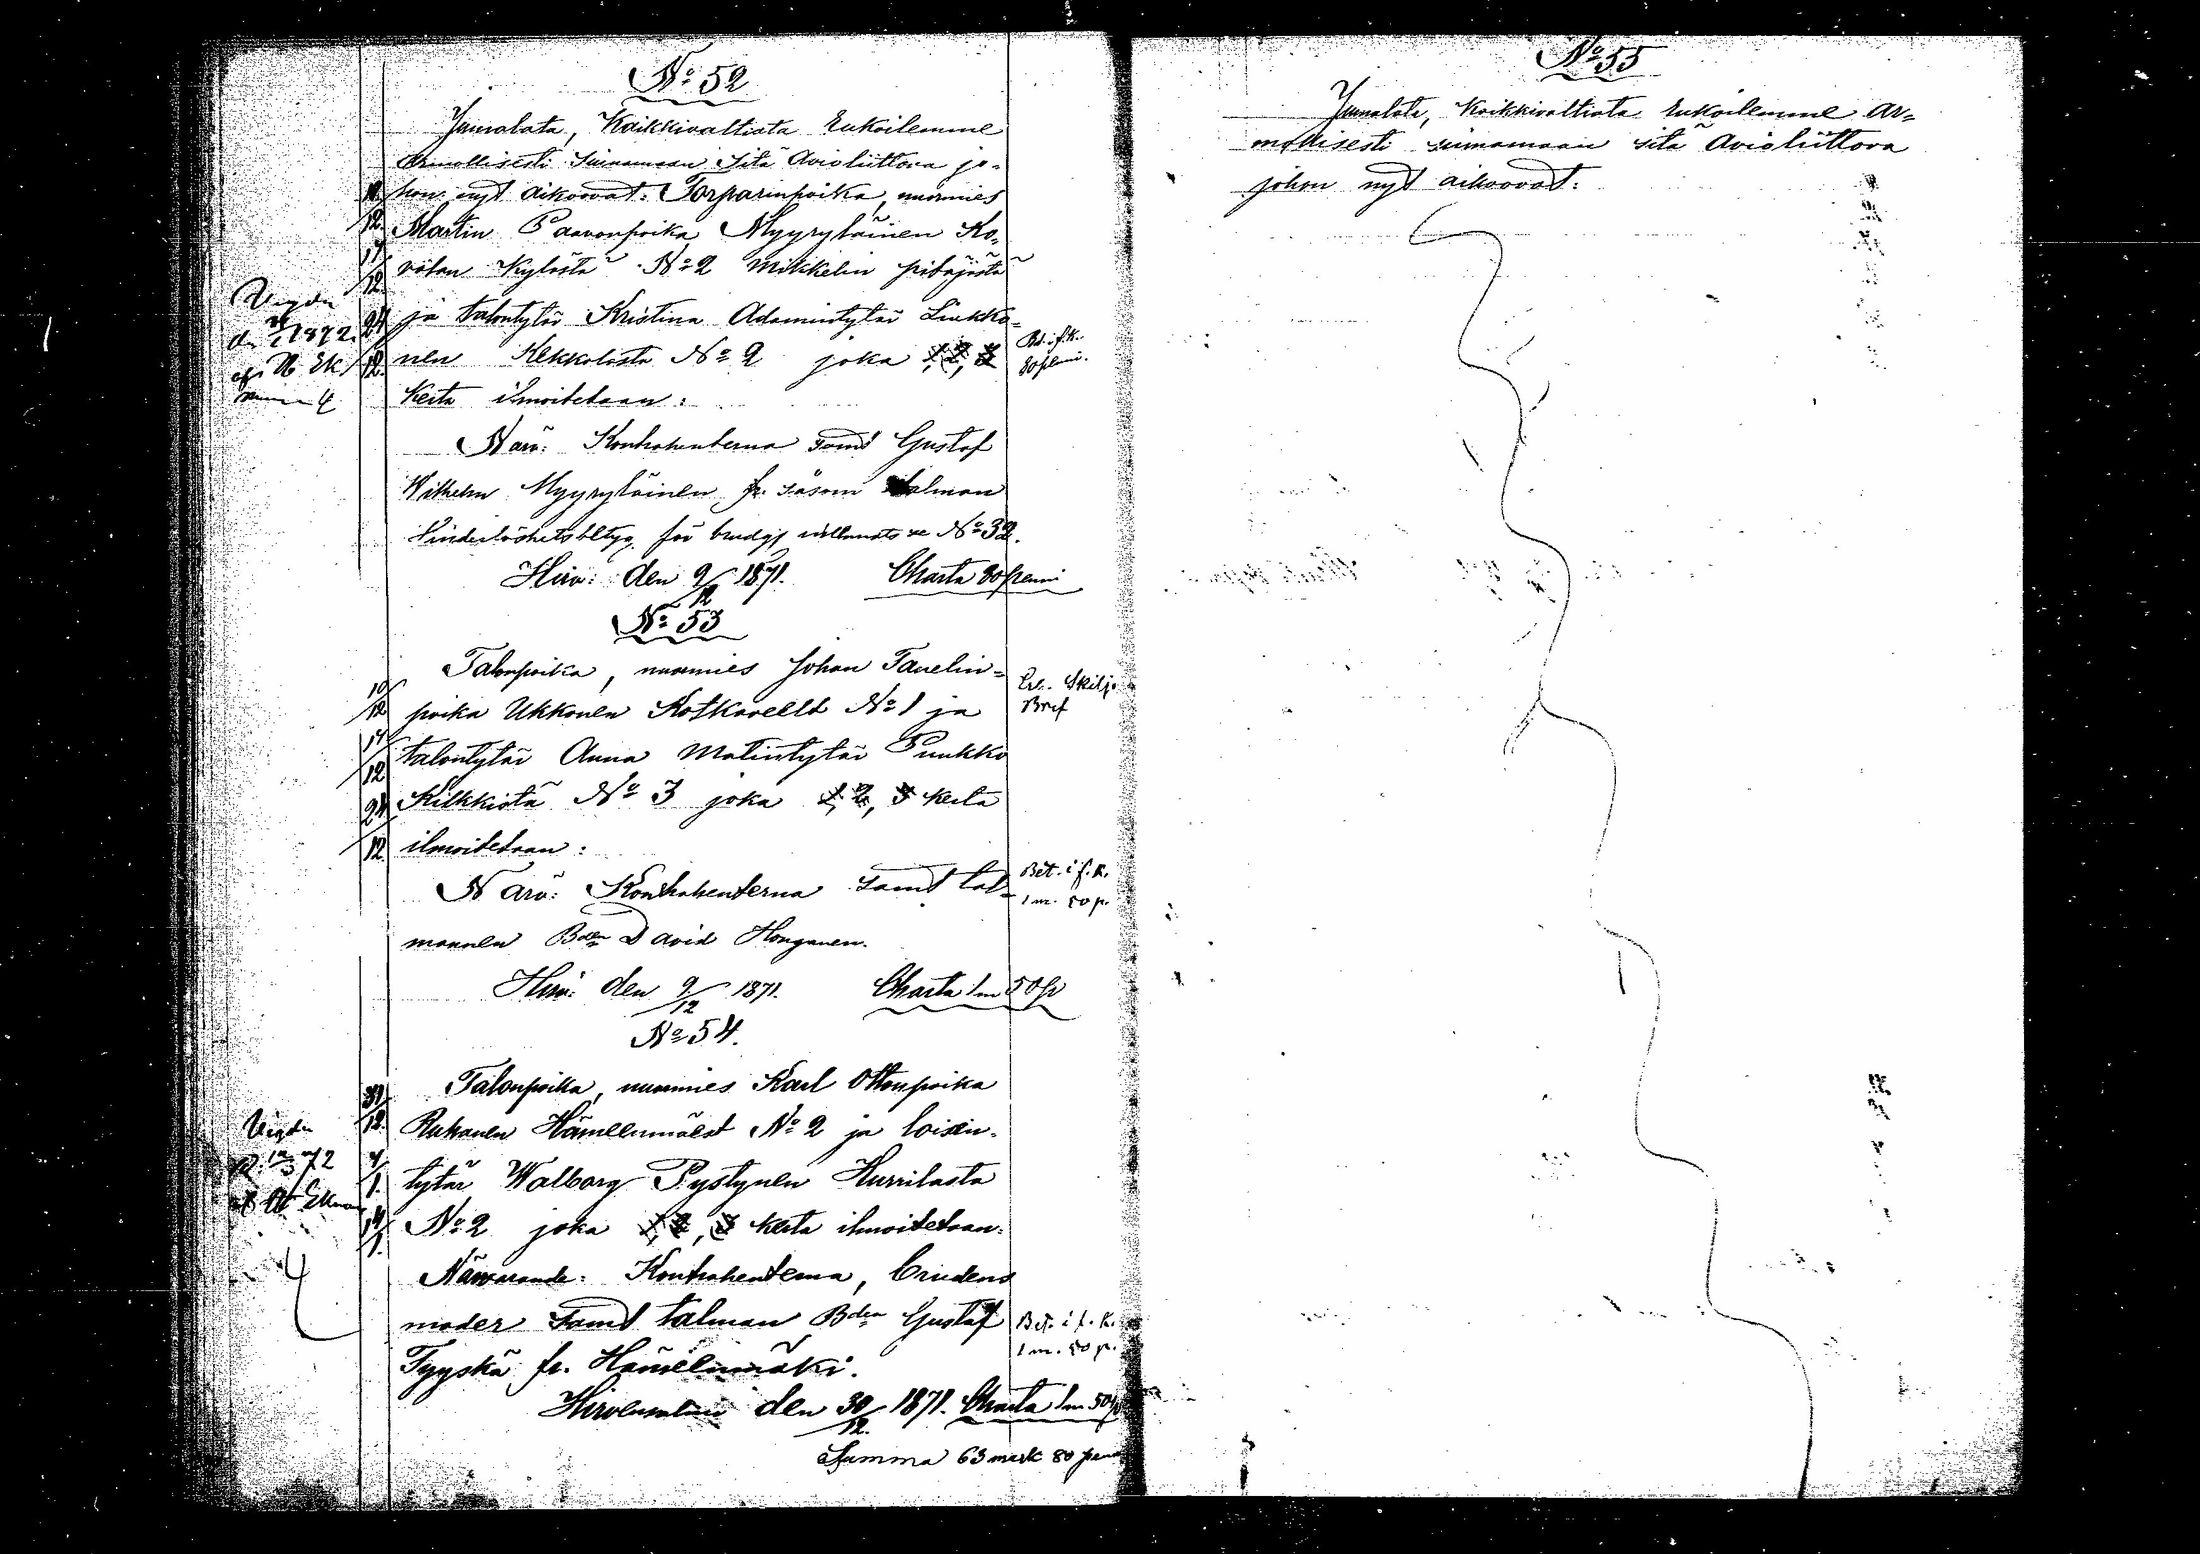 No 52
Jumalata, Kaikkivaltiata Rukoilemme
Armollisesti Siunamaan Sitä Avioliittoa jo-
hon nyt aikoovat: Torparinpoika, nuormies
Martin Paavonpoika Myyryläinen Ko-
volan Kylästä No 2 Mikkelin pitäjästä
ja talontytär Kristina Adamintytär Liukko-
nen Kekkolasta No 2 joka 1, 2, 3
Kerta ilmoitetaan:
Närv: Kontrahenterna samt Gustaf
Wilhelm Myyryläinen fr. såsom talman
Hinderlöshetsbetyg för brudg
No 32.
Hirv: den 9/12 1871. Charta 80 penni
10/12
17/12
24/12
Vigde
1872
Bet. i f.k.
80 penni.
No 53
Talonpoika, nuormies Johan Tavelin-
poika Ukkonen Kotkavellt No 1 ja
talontytär Anna Matintytär Puukko
Kilkkistä No 3 joka 1, 2, 3 kerta
ilmoitetaan:
Närv: Kontrahenterna samt tal-
mannen Bden David Honganen.
Hirv: den 9/12 1871. Charta 1 m 50 p
10/12
17/12
24/12
Erl. Skilje
Bref
Bet. i f.k.
1 m. 50 p.
No 54.
Talonpoika, nuormies Karl Ottonpoika
Rukanen Hämeenmäest No 2 ja loisen-
tytär Walborg Pystynen Hurrilasta
No 2 joka 1, 2, 3 kerta ilmoitetaan:
Närvarande: Kontrahenterna, brudens
moder samt talman Bden Gustaf
Tyyskä fr. Hämeenmäki.
Hirvensalmi den 30/12 1871. Charta 1 m 50 p
Summa 63 mark 80 penni
31/12
7/1
14/1
Vigde
72
Bet. i f.k.
1 m. 50 p.
No 55
Jumalata, Kaikkivaltiata Rukoilemme Ar-
mollisesti siunamaan sitä Avioliittoa
johon nyt aikoovat: